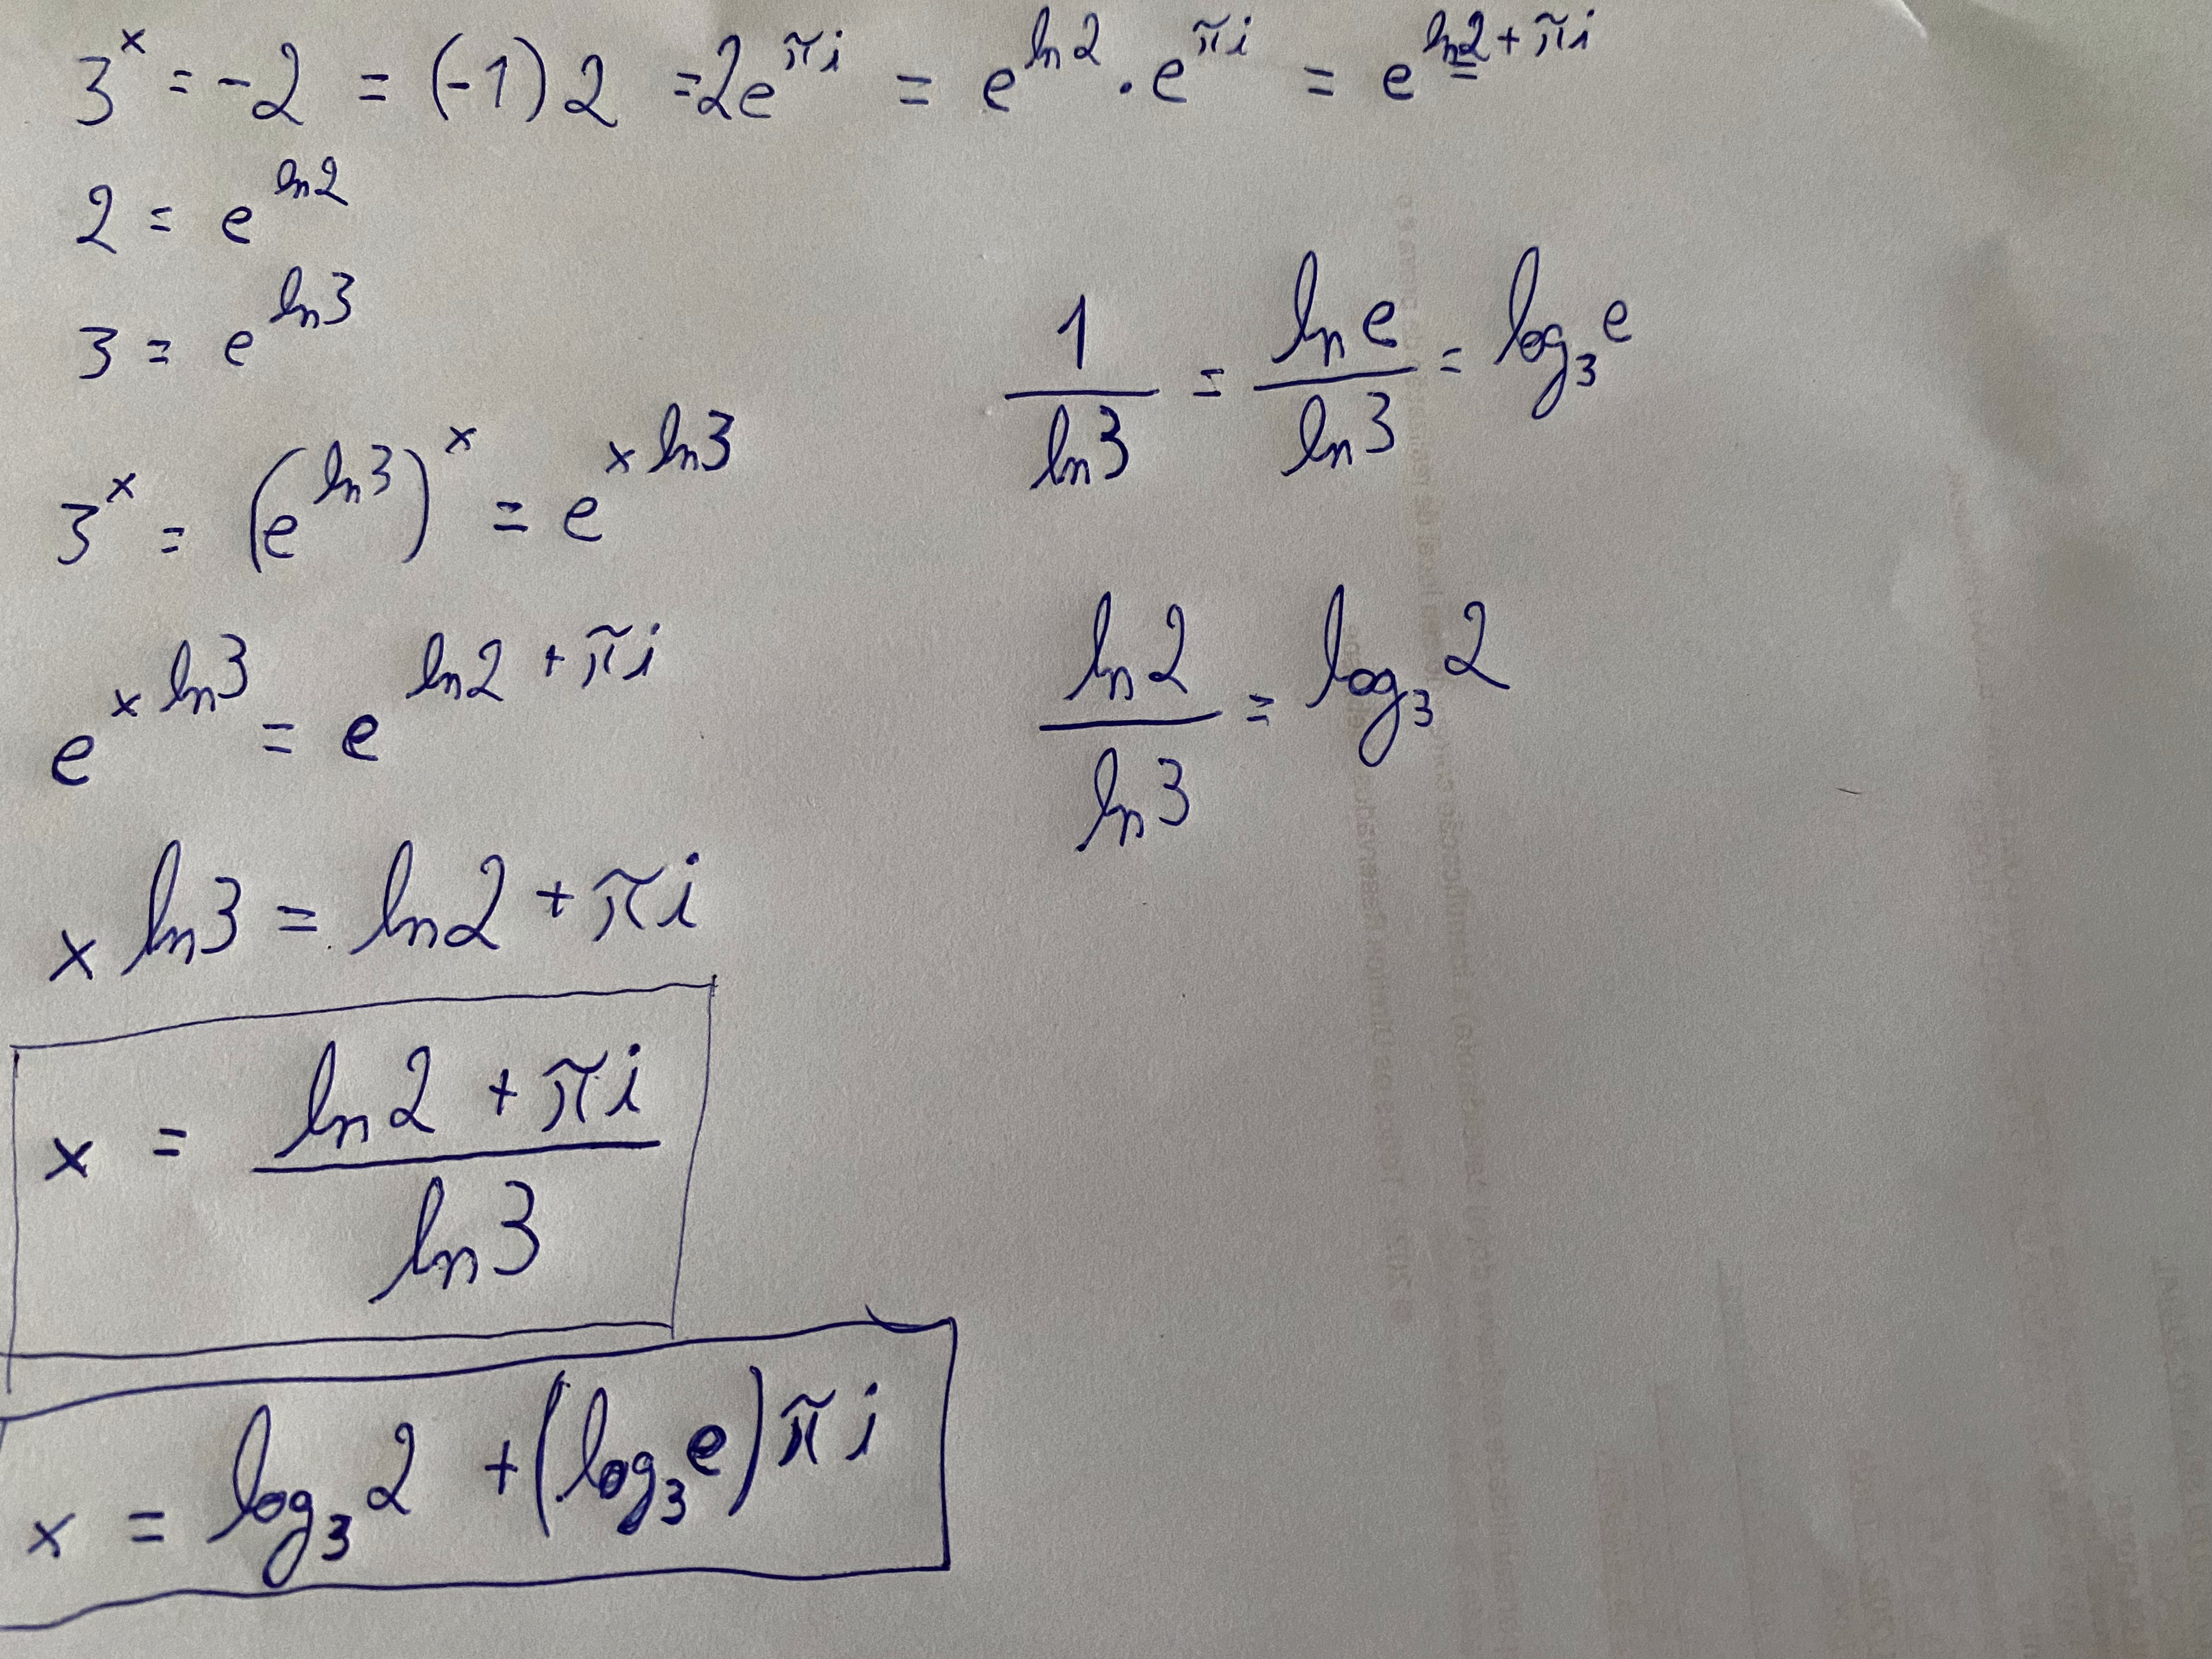 3^x = -2 = (-1) 2 = 2e^{πi} = e^{ln2} · e^{πi} = e^{ln2 + πi}
2 = e^{ln2}
3 = e^{ln3}
3^x = (e^{ln3})^x = e^{x ln3}
e^{x ln3} = e^{ln2 + πi}
x ln3 = ln2 + πi
x = \frac{ln2 + πi}{ln3}
x = log_3 2 + (log_3 e) πi
\frac{1}{ln3} = \frac{ln e}{ln3} = log_3 e
\frac{ln2}{ln3} = log_3 2